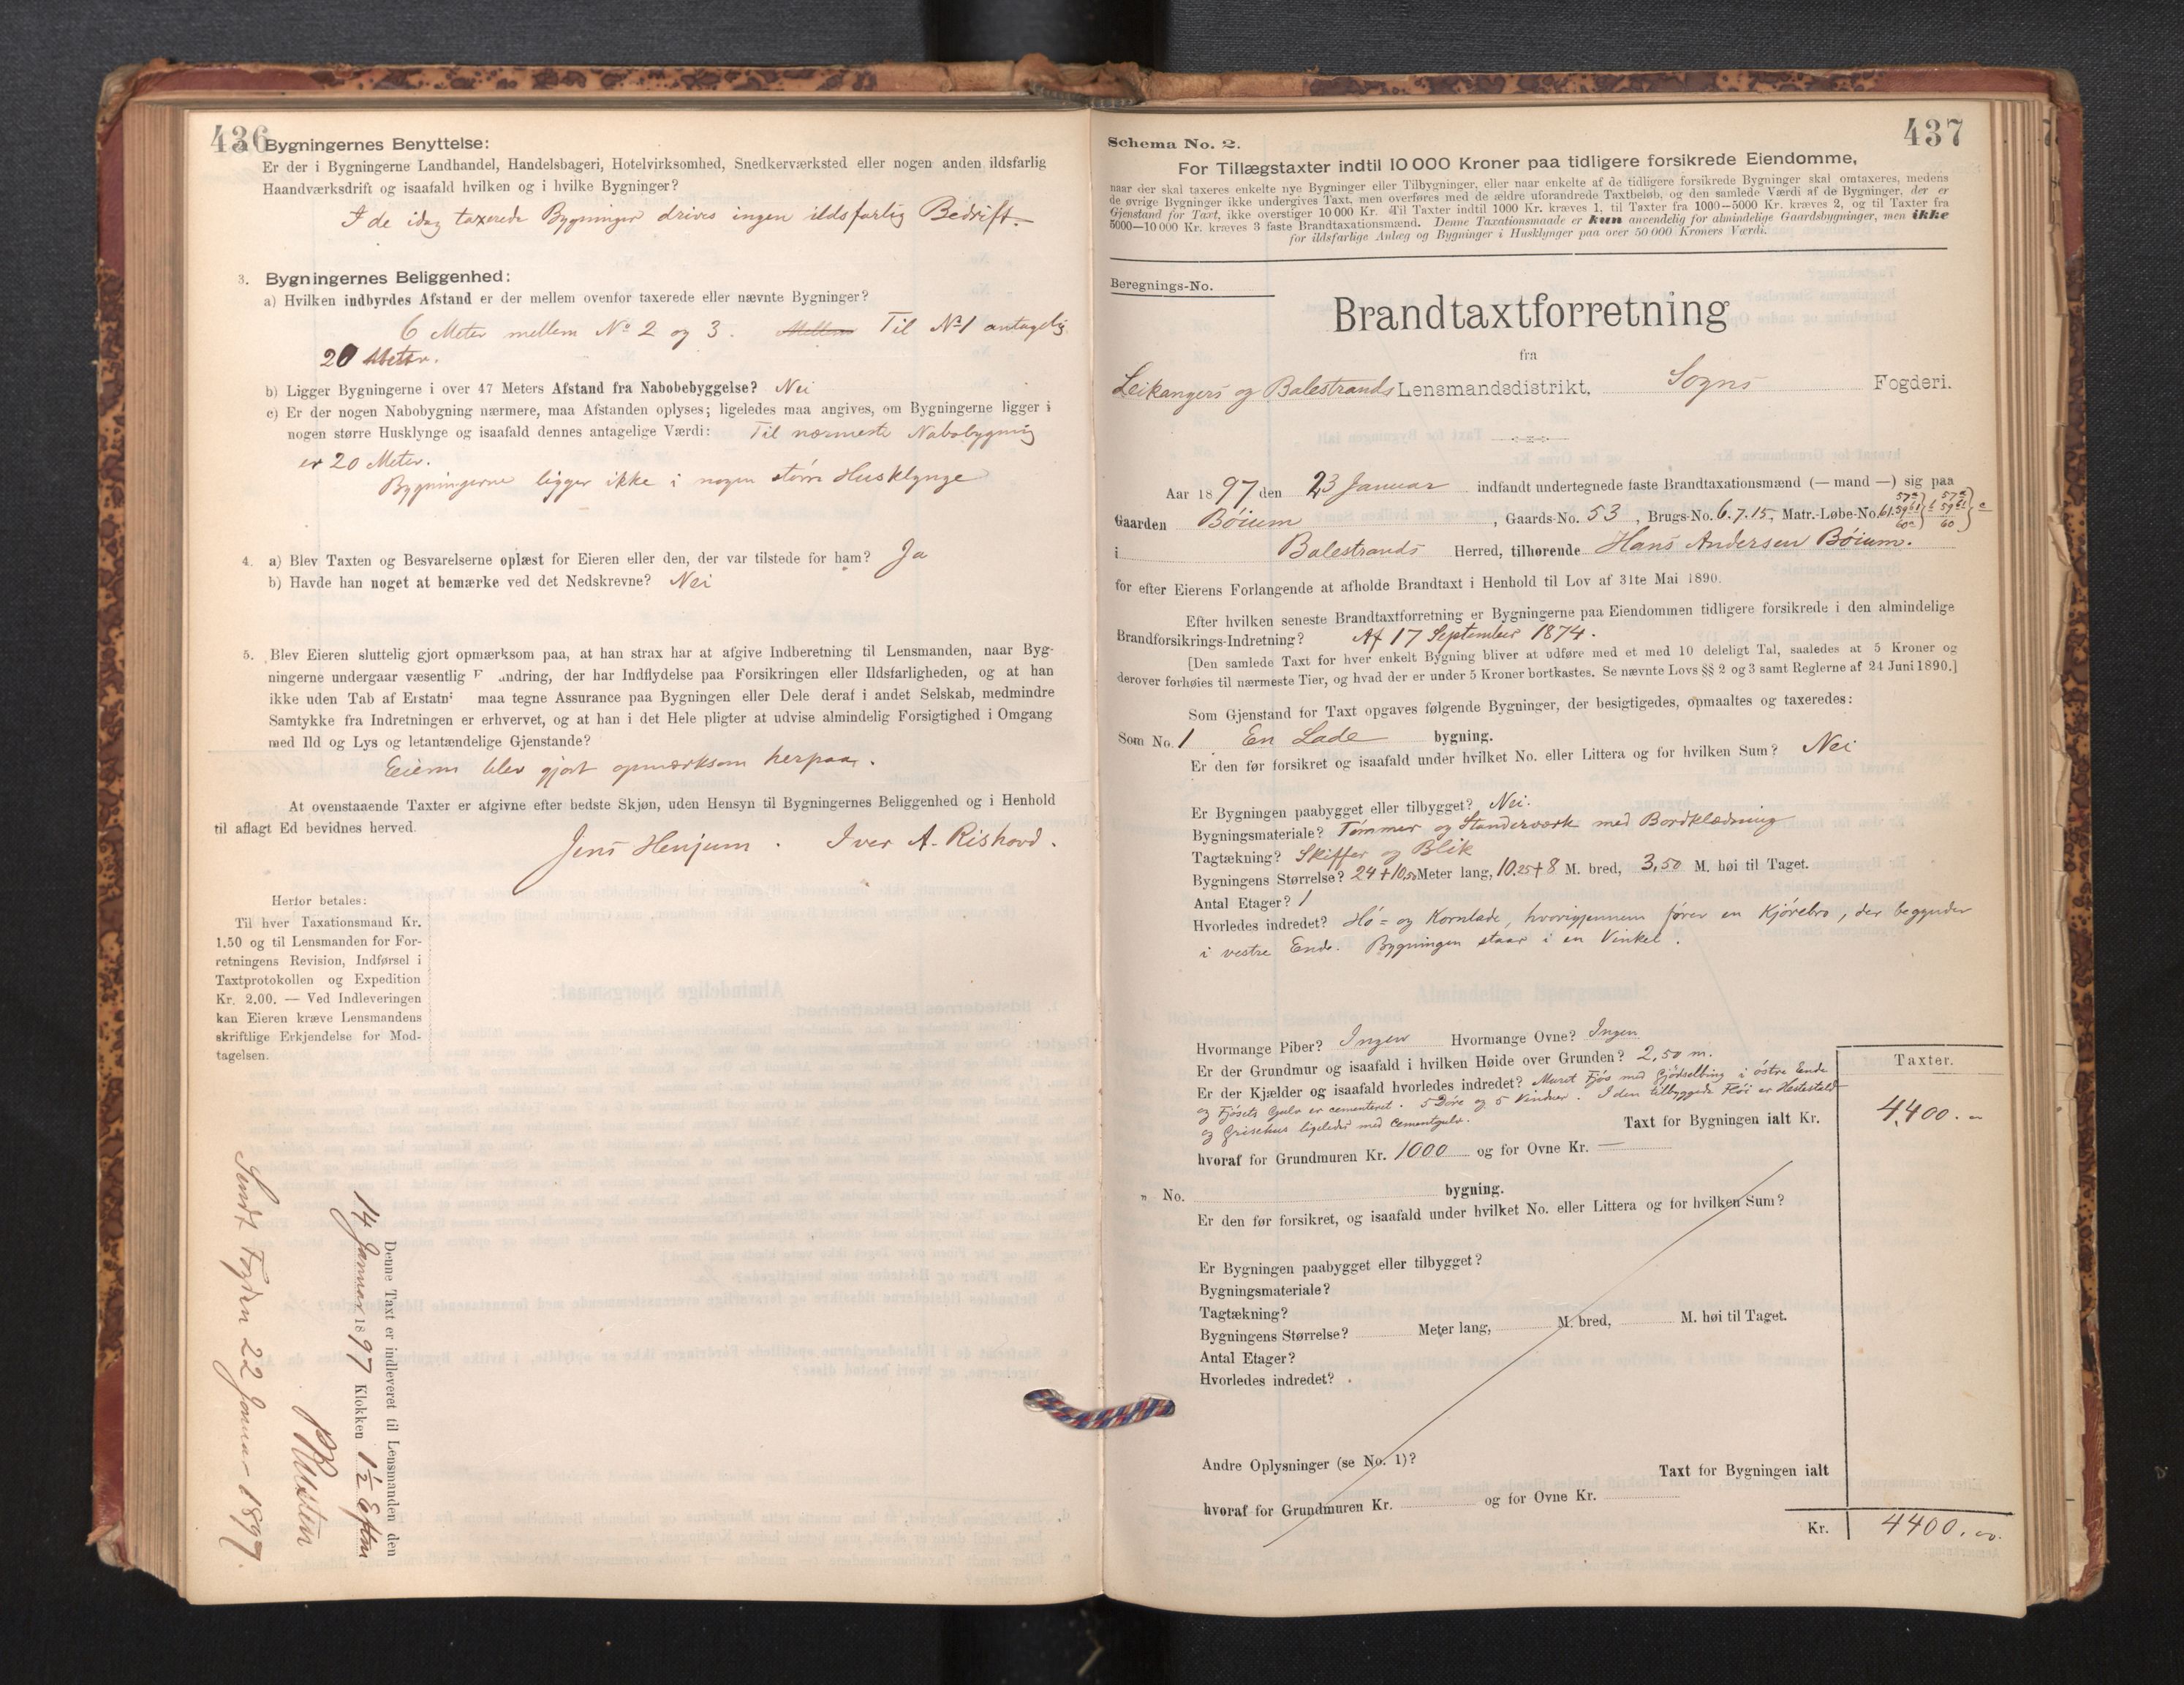 436
Bygningernes Benyttelse:
Er der i Bygningerne Landhandel, Handelsbageri, Hotelvirksomhed, Snedkerværksted eller nogen anden ildsfarlig
Haandværksdrift og isaafald hvilken og i hvilke Bygninger?
I de idag taxerede Bygninger drives ingen ildsfarlig Bedrift.
3. Bygningernes Beliggenhed:
a) Hvilken indbyrdes Afstand er der mellem ovenfor taxerede eller nævnte Bygninger?
6 Meter mellem No 2 og 3. Mellem Til No 1 antagelig
20 Meter.
b) Ligger Bygningerne i over 47 Meters Afstand fra Nabobebyggelse? Nei
c) Er der nogen Nabobygning nærmere, maa Afstanden oplyses; ligeledes maa angives, om Bygningerne ligger i
nogen større Husklynge og isaafald dennes antagelige Værdi: Til nærmeste Nabobygning
er 20 Meter.
Bygningerne ligger ikke i nogen större Husklynge
4. a) Blev Taxten og Besvarelserne oplæst for Eieren eller den, der var tilstede for ham? Ja
b) Havde han noget at bemærke ved det Nedskrevne? Nei
5. Blev Eieren sluttelig gjort opmærksom paa, at han strax har at afgive Indberetning til Lensmanden, naar Byg-
ningerne undergaar væsentlig F andring, der har Indflydelse paa Forsikringen eller Ildsfarligheden, og at han
ikke uden Tab af Erstatn maa tegne Assurance paa Bygningen eller Dele deraf i andet Selskab, medmindre
Samtykke fra Indretningen er erhvervet, og at han i det Hele pligter at udvise almindelig Forsigtighed i Omgang
med Ild og Lys og letantændelige Gjenstande?
Eieren blev gjort opmærksom herpaa.
At ovenstaaende Taxter er afgivne efter bedste Skjøn, uden Hensyn til Bygningernes Beliggenhed og i Henhold
til aflagt Ed bevidnes herved.
Jens Henjum. Iver A. Rishovd.
Herfor betales:
Til hver Taxationsmand Kr.
1.50 og til Lensmanden for For-
retningens Revision, Indførsel i
Taxtprotokollen og Expedition
Kr. 2.00. — Ved Indleveringen
kan Eieren kræve Lensmandens
skriftlige Erkjendelse for Mod-
tagelsen.
Denne Taxt er indleveret til Lensmanden den
14 Januar 1897 Klokken 1½ Eftm
Sendt Fogden 22 Januar 1897.
437
Schema No. 2.
For Tillægstaxter indtil 10 000 Kroner paa tidligere forsikrede Eiendomme,
naar der skal taxeres enkelte nye Bygninger eller Tilbygninger, eller naar enkelte af de tidligere forsikrede Bygninger skal omtaxeres, medens
de øvrige Bygninger ikke undergives Taxt, men overføres med de ældre uforandrede Taxtbeløb, og den samlede Værdi af de Bygninger, der er
Gjenstand for Taxt, ikke overstiger 10 000 Kr. Til Taxter indtil 1000 Kr. kræves 1, til Taxter fra 1000—5000 Kr. kræves 2, og til Taxter fra
5000—10 000 Kr. kræves 3 faste Brandtaxationsmænd. Denne Taxationsmaade er kun anvendelig for almindelige Gaardsbygninger, men ikke
for ildsfarlige Anlæg og Bygninger i Husklynger paa over 50 000 Kroners Værdi.
Beregnings-No.
Brandtaxtforretning
fra
Leikangers og Balestrands Lensmandsdistrikt, Sogns Fogderi.
Aar 1897 den 23 Januar indfandt undertegnede faste Brandtaxationsmænd (— mand —) sig paa
Gaarden Böium, Gaards-No. 53, Brugs-No. 6.7.15, Matr.-Løbe-No.
i Balestrands Herred, tilhørende Hans Andersen Böium.
for efter Eierens Forlangende at afholde Brandtaxt i Henhold til Lov af 31te Mai 1890.
Efter hvilken seneste Brandtaxtforretning er Bygningerne paa Eiendommen tidligere forsikrede i den almindelige
Brandforsikrings-Indretning? Af 17 September 1874.
[Den samlede Taxt for hver enkelt Bygning bliver at udføre med et med 10 deleligt Tal, saaledes at 5 Kroner og
derover forhøies til nærmeste Tier, og hvad der er under 5 Kroner bortkastes. Se nævnte Lovs §§ 2 og 3 samt Reglerne af 24 Juni 1890.]
Som Gjenstand for Taxt opgaves følgende Bygninger, der besigtigedes, opmaaltes og taxeredes:
Som No. 1 En Lade bygning.
Er den før forsikret og isaafald under hvilket No. eller Littera og for hvilken Sum? Nei
Er Bygningen paabygget eller tilbygget? Nei.
Bygningsmateriale? Tömmer og Standerværk med Bordklædning
Tagtækning? Skiffer og Blik
Bygningens Størrelse? 24 + 10,50 Meter lang, 10.25 + 8 M. bred, 3,50 M. høi til Taget.
Antal Etager? 1
Hvorledes indredet? Hö= og Kornlade, hvorigjennem förer en Kjörebro, der begynder
i vestre Ende. Bygningen staar i en Vinkel.
Hvormange Piber? Ingen Hvormange Ovne? Ingen
Er der Grundmur og isaafald i hvilken Høide over Grunden? 2,50 m.
Er der Kjælder og isaafald hvorledes indredet? Muret Fjös med Gjödselbing i östre Ende
og Fjösets Gulv er cementeret. 5 Döre og 5 Vinduer. I den tilbyggede Flöi er Hestestald
og Grisehus ligeledes med Cementgulv.
Taxt for Bygningen ialt Kr.
Taxter.
4,400.
hvoraf for Grundmuren Kr. 1000 og for Ovne Kr. —
„ No. bygning.
Er den før forsikret, og isaafald under hvilket No. eller Littera og for hvilken Sum?
Er Bygningen paabygget eller tilbygget?
Bygningsmateriale?
Tagtækning?
Bygningens Størrelse? Meter lang, M. bred, M. høi til Taget.
Antal Etager?
Hvorledes indredet?
Andre Oplysninger (se No. 1)?
Taxt for Bygningen ialt
hvoraf for Grundmuren Kr. og for Ovne Kr.
Kr. 4400.